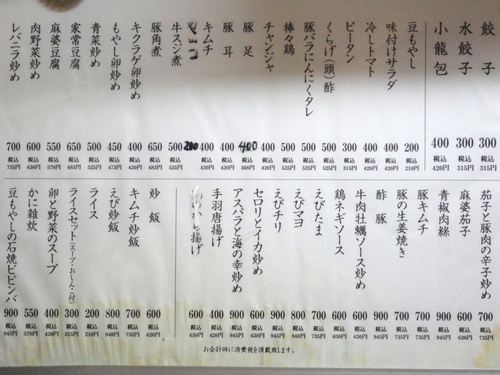 餃子 300 税込 315円
水餃子 300 税込 315円
小龍包 400 税込 420円
豆もやし 200 税込 210円
味付けサラダ 400 税込 420円
冷しトマト 400 税込 420円
ピータン 300 税込 315円
くらげ(頭)酢 500 税込 525円
豚バラにんにくタレ 500 税込 525円
棒々鶏 500 税込 525円
チャンジャ 400 税込 420円
豚足 400 税込
豚耳 400 税込 420円
キムチ 400 税込 420円
200
牛スジ煮 500 税込 525円
豚角煮 650 税込 683円
キクラゲ卵炒め 400 税込 420円
もやし卵炒め 450 税込 473円
青菜炒め 500 税込 525円
家常豆腐 650 税込 683円
麻婆豆腐 550 税込 578円
肉野菜炒め 600 税込 630円
レバニラ炒め 700 税込 735円
茄子と豚肉の辛子炒め 700 税込 735円
麻婆茄子 600 税込 630円
青椒肉絲 900 税込 945円
豚キムチ 700 税込 735円
豚の生姜焼き 700 税込 735円
酢豚 900 税込 945円
牛肉牡蠣ソース炒め 900 税込 945円
鶏ネギソース 700 税込 735円
えびたま 800 税込 840円
えびマヨ 900 税込 945円
えびチリ 900 税込 945円
セロリとイカ炒め 600 税込 630円
アスパラと海の幸炒め 900 税込 945円
手羽唐揚げ 400 税込 420円
から揚げ 600 税込 630円
炒飯 600 税込 630円
キムチ炒飯 700 税込 735円
えび炒飯 800 税込 840円
ライス 200 税込 210円
ライスセット(スープ・おしんこ付) 300 税込 315円
卵と野菜のスープ 400 税込 420円
かに雑炊 550 税込 578円
豆もやしの石焼ビビンバ 900 税込 945円
お会計時に消費税を頂戴致します。